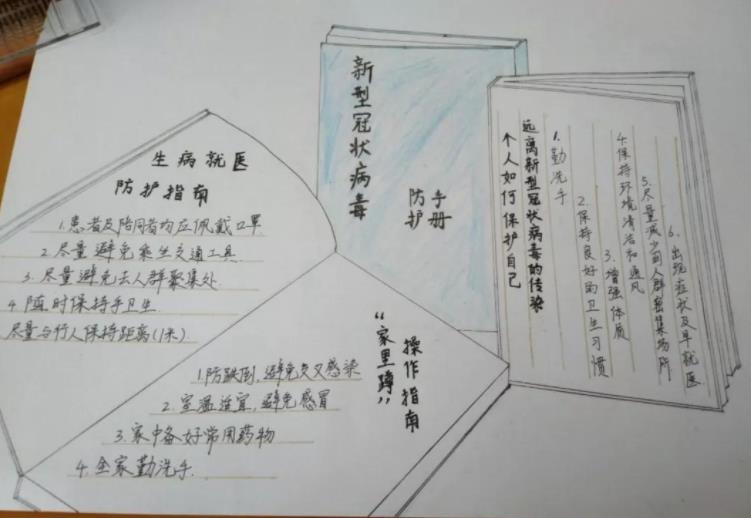 新型冠状病毒
防护
手册
个人如何保护自己
远离新型冠状病毒的传染
1.勤洗手
2.保持良好的卫生习惯
3.增强体质
4.保持环境清洁和通风
5.尽量减少到人群密集场所
6.出现症状及早就医
生病就医
防护指南
1.患者及陪同者均应佩戴口罩
2.尽量避免乘坐交通工具
3.尽量避免去人群聚集处
4.随时保持手卫生
尽量与行人保持距离(1米)
“家里蹲”
操作指南
1.防跌倒,避免交叉感染
2.室温适宜,避免感冒
3.家中备好常用药物
4.全家勤洗手.